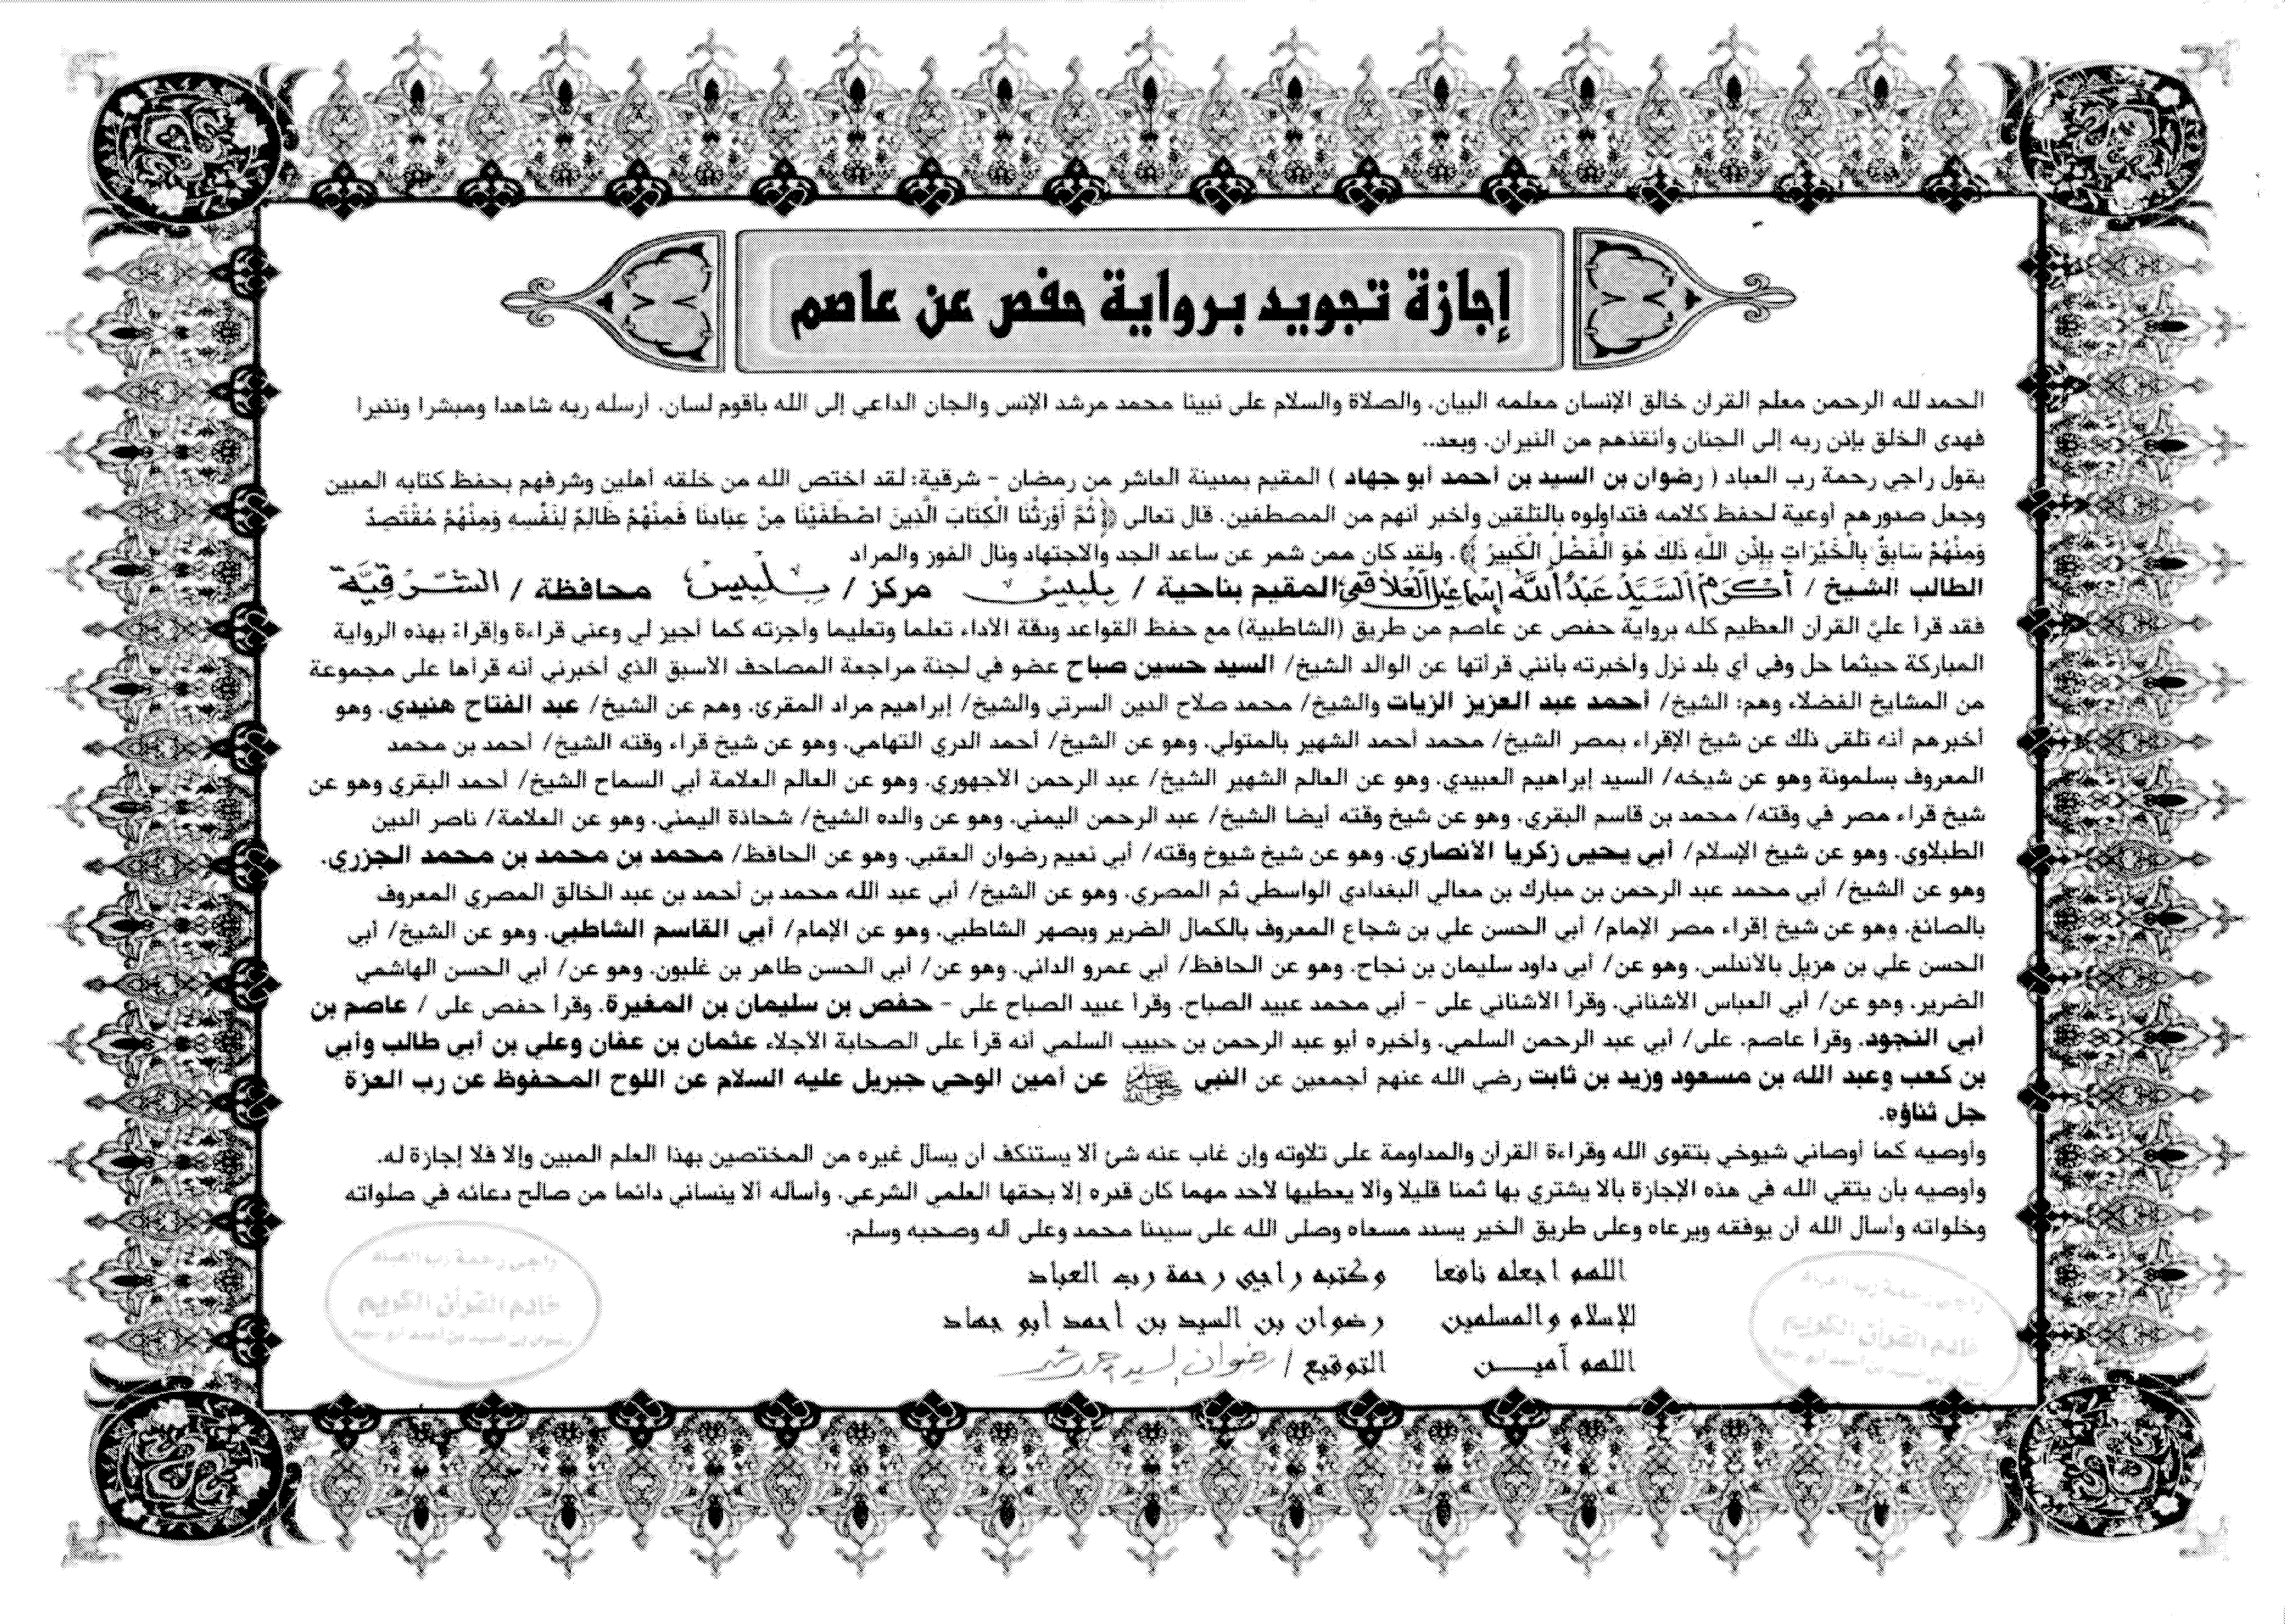 إجازة تجويد برواية حفص عن عاصم
الحمد لله الرحمن معلم القرآن خالق الإنسان معلمه البيان، والصلاة والسلام على نبينا محمد مرشد الإنس والجان الداعي إلى الله بأقوم لسان، أرسله ربه شاهدا ومبشرا ونذيرا
فهدى الخلق بإذن ربه إلى الجنان وأنقذهم من النيران. وبعد..
يقول راجي رحمة رب العباد ( رضوان بن السيد بن أحمد أبو جهاد ) المقيم بمدينة العاشر من رمضان - شرقية: لقد اختص الله من خلقه أهلين وشرفهم بحفظ كتابه المبين
وجعل صدورهم أوعية لحفظ كلامه فتداولوه بالتلقين وأخبر أنهم من المصطفين. قال تعالى ﴿ ثُمَّ أَوْرَثْنَا الْكِتَابَ الَّذِينَ اصْطَفَيْنَا مِنْ عِبَادِنَا فَمِنْهُمْ ظَالِمٌ لِنَفْسِهِ وَمِنْهُمْ مُقْتَصِدٌ
وَمِنْهُمْ سَابِقٌ بِالْخَيْرَاتِ بِإِذْنِ اللَّهِ ذَلِكَ هُوَ الْفَضْلُ الْكَبِيرُ ﴾. ولقد كان ممن شمر عن ساعد الجد والاجتهاد ونال الفوز والمراد
الطالب الشيخ / أكرم السيد عبد الله إسماعيل العلاقمي المقيم بناحية / بلبيس مركز / بلبيس محافظة / الشرقية
فقد قرأ عليّ القرآن العظيم كله برواية حفص عن عاصم من طريق (الشاطبية) مع حفظ القواعد ودقة الأداء تعلما وتعليما وأجزته كما أجيز لي وعني قراءة وإقراءً بهذه الرواية
المباركة حيثما حل وفي أي بلد نزل وأخبرته بأنني قرأتها عن الوالد الشيخ/ السيد حسين صباح عضو في لجنة مراجعة المصاحف الأسبق الذي أخبرني أنه قرأها على مجموعة
من المشايخ الفضلاء وهم: الشيخ/ أحمد عبد العزيز الزيات والشيخ/ محمد صلاح الدين السرتي والشيخ/ إبراهيم مراد المقرئ. وهم عن الشيخ/ عبد الفتاح هنيدي. وهو
أخبرهم أنه تلقى ذلك عن شيخ الإقراء بمصر الشيخ/ محمد أحمد الشهير بالمتولي. وهو عن الشيخ/ أحمد الدري التهامي. وهو عن شيخ قراء وقته الشيخ/ أحمد بن محمد
المعروف بسلمونة وهو عن شيخه/ السيد إبراهيم العبيدي. وهو عن العالم الشهير الشيخ/ عبد الرحمن الأجهوري. وهو عن العالم العلامة أبي السماح الشيخ/ أحمد البقري وهو عن
شيخ قراء مصر في وقته/ محمد بن قاسم البقري. وهو عن شيخ وقته أيضا الشيخ/ عبد الرحمن اليمني. وهو عن والده الشيخ/ شحاذة اليمني. وهو عن العلامة/ ناصر الدين
الطبلاوي. وهو عن شيخ الإسلام/ أبي يحيى زكريا الأنصاري. وهو عن شيخ شيوخ وقته/ أبي نعيم رضوان العقبي. وهو عن الحافظ/ محمد بن محمد بن محمد الجزري.
وهو عن الشيخ/ أبي محمد عبد الرحمن بن مبارك بن معالي البغدادي الواسطي ثم المصري. وهو عن الشيخ/ أبي عبد الله محمد بن أحمد بن عبد الخالق المصري المعروف
بالصائغ. وهو عن شيخ إقراء مصر الإمام/ أبي الحسن علي بن شجاع المعروف بالكمال الضرير وبصهر الشاطبي. وهو عن الإمام/ أبي القاسم الشاطبي. وهو عن الشيخ/ أبي
الحسن علي بن هزيل بالأندلس. وهو عن/ أبي داود سليمان بن نجاح. وهو عن الحافظ/ أبي عمرو الداني. وهو عن/ أبي الحسن طاهر بن غلبون. وهو عن/ أبي الحسن الهاشمي
الضرير. وهو عن/ أبي العباس الأشناني. وقرأ الأشناني على - أبي محمد عبيد الصباح. وقرأ عبيد الصباح على - حفص بن سليمان بن المغيرة. وقرأ حفص على / عاصم بن
أبي النجود. وقرأ عاصم. على/ أبي عبد الرحمن السلمي. وأخبره أبو عبد الرحمن بن حبيب السلمي أنه قرأ على الصحابة الأجلاء عثمان بن عفان وعلي بن أبي طالب وأبي
بن كعب وعبد الله بن مسعود وزيد بن ثابت رضي الله عنهم أجمعين عن النبي ﷺ عن أمين الوحي جبريل عليه السلام عن اللوح المحفوظ عن رب العزة
جل ثناؤه.
وأوصيه كما أوصاني شيوخي بتقوى الله وقراءة القرآن والمداومة على تلاوته وإن غاب عنه شئ ألا يستنكف أن يسأل غيره من المختصين بهذا العلم المبين وإلا فلا إجازة له.
وأوصيه بأن يتقي الله في هذه الإجازة بألا يشتري بها ثمنا قليلا وألا يعطيها لأحد مهما كان قدره إلا بحقها العلمي الشرعي. وأسأله ألا ينساني دائما من صالح دعائه في صلواته
وخلواته وأسأل الله أن يوفقه ويرعاه وعلى طريق الخير يسدد مسعاه وصلى الله على سيدنا محمد وعلى آله وصحبه وسلم.
اللهم اجعله نافعا وكتبه راجي رحمة رب العباد
للإسلام والمسلمين رضوان بن السيد بن أحمد أبو جهاد
اللهم آميـــن التوقيع / رضوان السيد أحمد
راجي رحمة رب العباد
خادم القرآن الكريم
رضوان بن السيد بن أحمد أبو جهاد
خادم القرآن الكريم